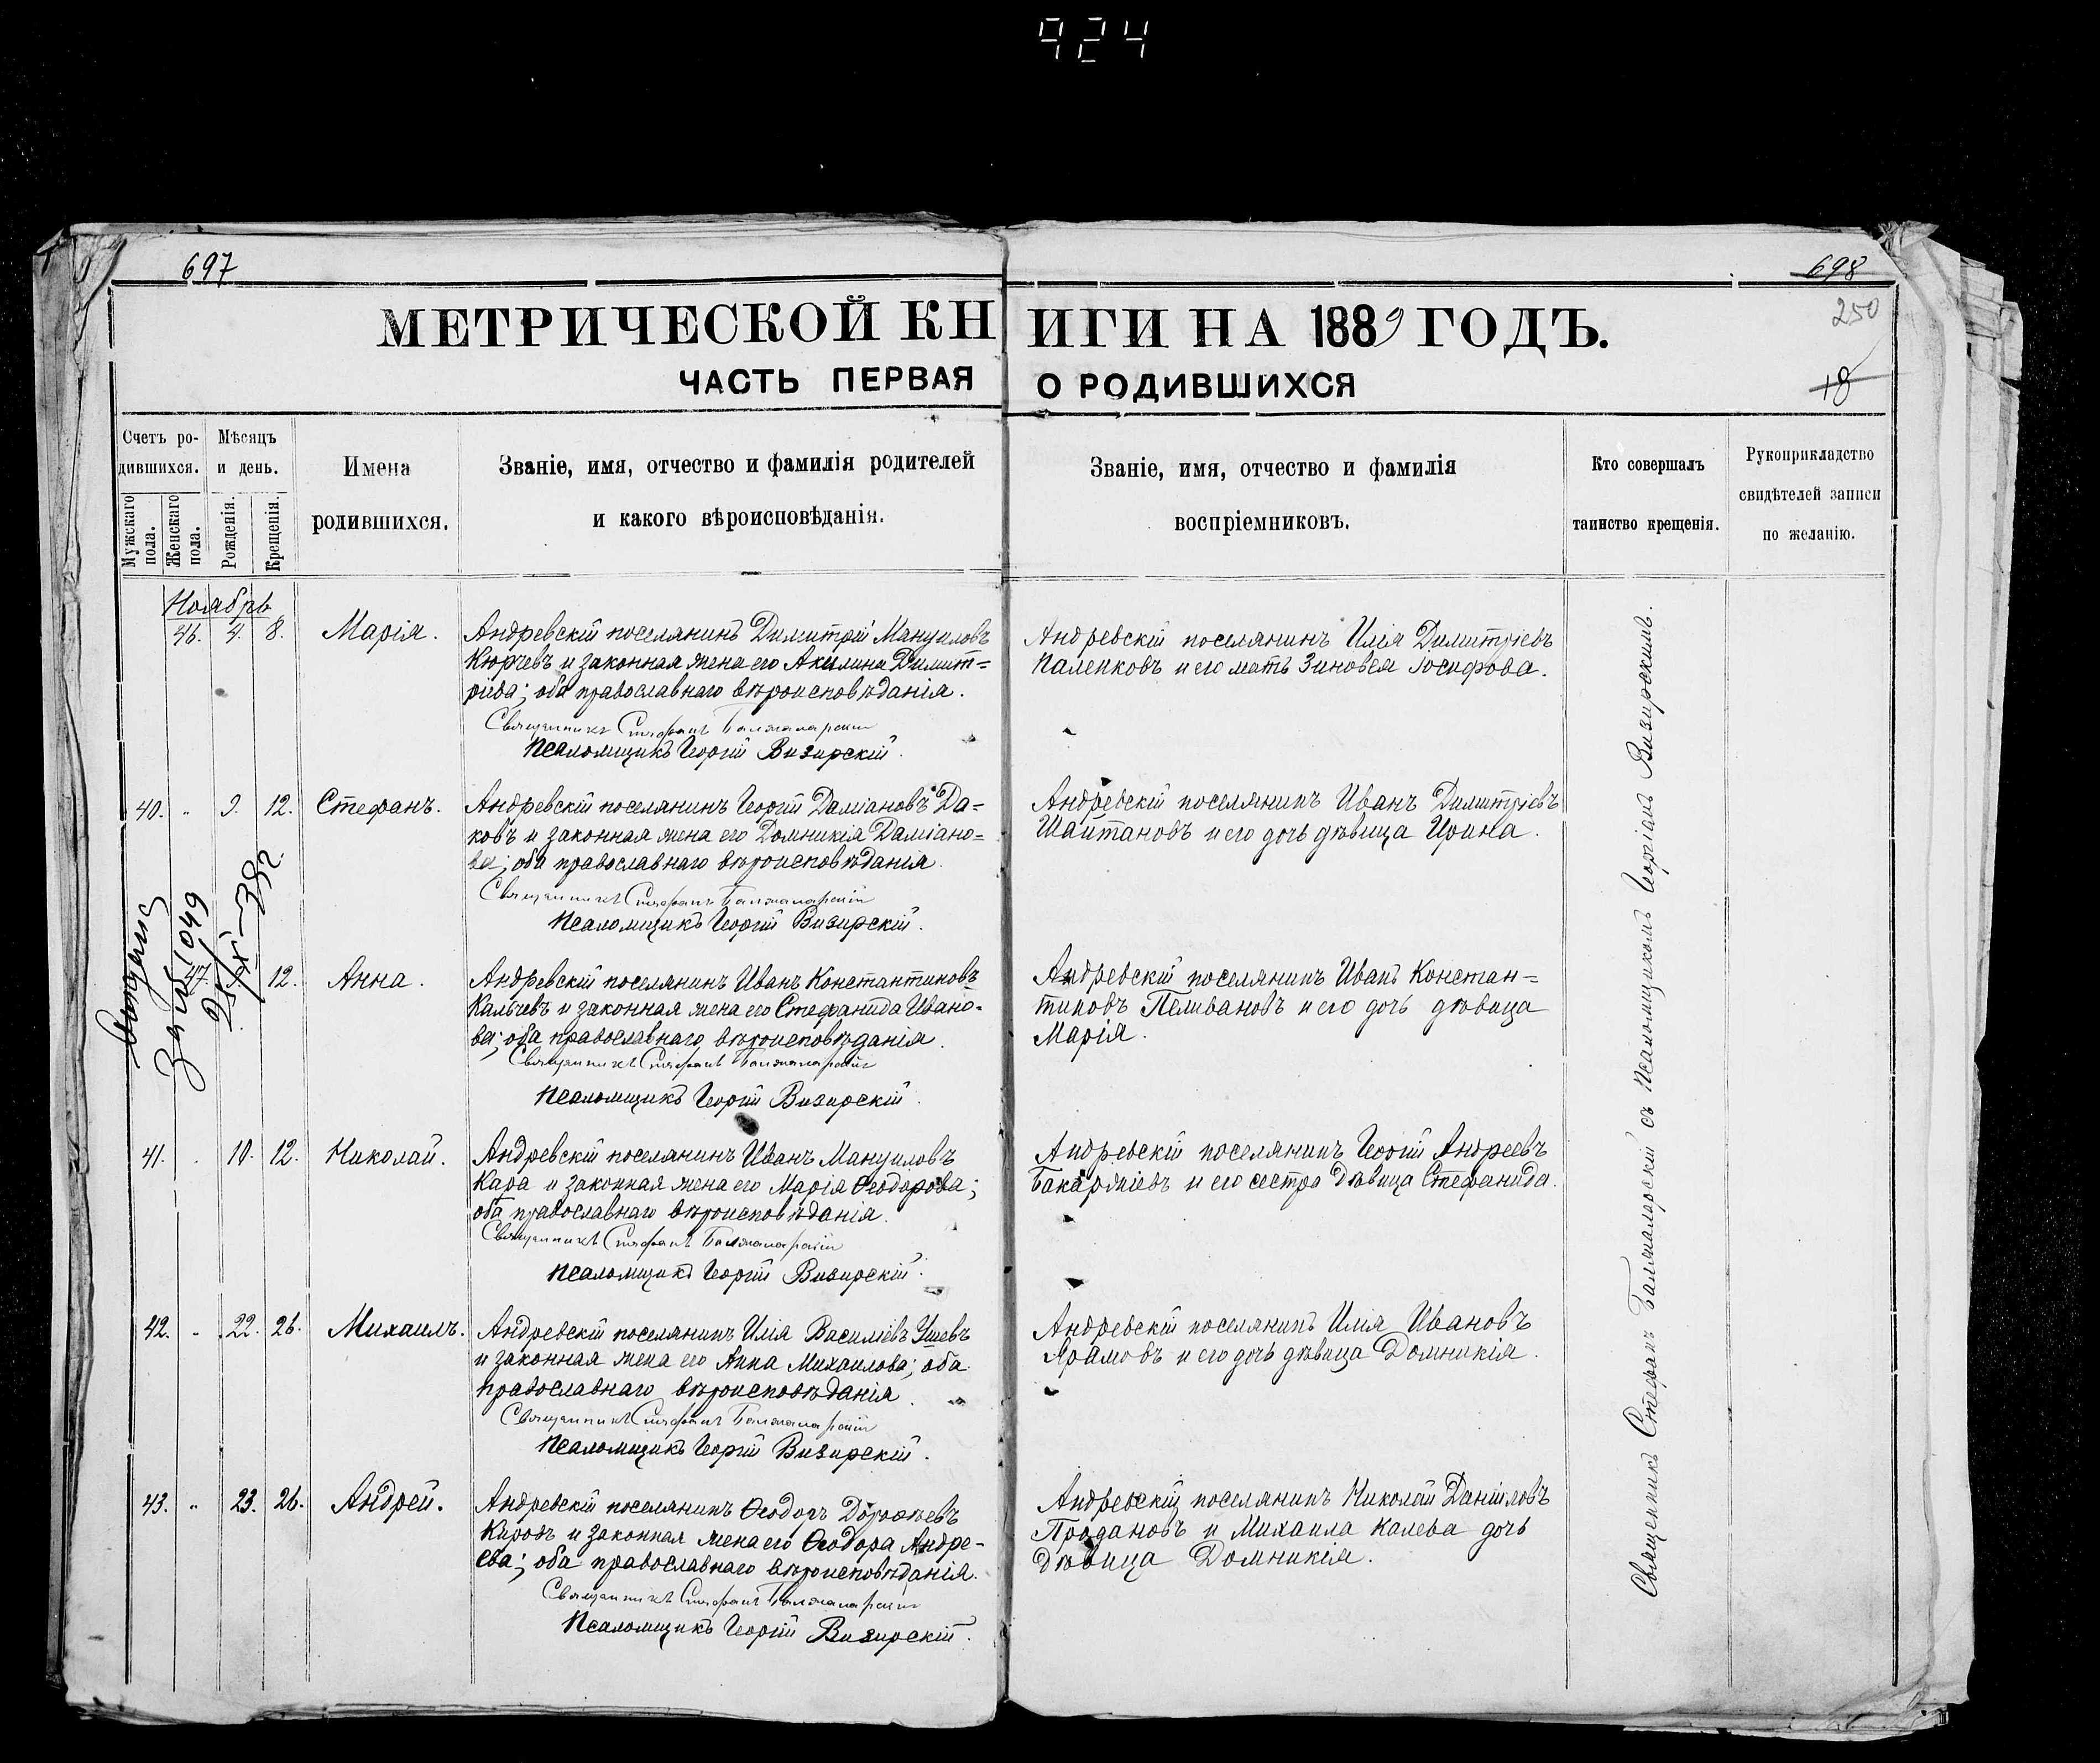 924
697
698
250
18
МЕТРИЧЕСКОЙ КНИГИ НА 1889 ГОДЪ.
ЧАСТЬ ПЕРВАЯ О РОДИВШИХСЯ
Счетъ ро-
дившихся.
Мужскаго
пола.
Женскаго
пола.
Мѣсяцъ
и день.
Рожденія.
Крещенія.
Имена
родившихся.
Званіе, имя, отчество и фамилія родителей
и какого вѣроисповѣданія.
Званіе, имя, отчество и фамилія
воспріемниковъ.
Кто совершалъ
таинство крещенія.
Рукоприкладство
свидѣтелей записи
по желанію.
Ноябрь
46. 4. 8. Марія.
Андреевскій поселянинъ Димитрій Мануиловъ
Кюрчевъ и законная жена его Акилина Димит=
ріева; оба православнаго вѣроисповѣданія.
Священникъ Стефанъ Балжаларскій
Псаломщикъ Георгій Визирскій.
Андреевскій поселянинъ Илія Димитріевъ
Паленковъ и его мать Зиновія Іосифова.
40. " 9. 12. Стефанъ.
Андреевскій поселянинъ Георгій Даміановъ Да=
ковъ и законная жена его Домникія Даміано=
ва; оба православнаго вѣроисповѣданія.
Священникъ Стефанъ Балжаларскій
Псаломщикъ Георгій Визирскій.
Андреевскій поселянинъ Иванъ Димитріевъ
Шайтановъ и его дочь дѣвица Ирина.
1049
25/XI—382
47. 12. Анна.
Андреевскій поселянинъ Иванъ Константиновъ
Кальчевъ и законная жена его Стефанида Ивано-
ва; оба православнаго вѣроисповѣданія.
Священникъ Стефанъ Балжаларскій
Псаломщикъ Георгій Визирскій.
Андреевскій поселянинъ Иванъ Констан=
тиновъ Пеливановъ и его дочь дѣвица
Марія.
41. 10. 12. Николай.
Андреевскій поселянинъ Иванъ Мануиловъ
Кара и законная жена его Марія Ѳеодорова;
оба православнаго вѣроисповѣданія.
Священникъ Стефанъ Балжаларскій
Псаломщикъ Георгій Визирскій.
Андреевскій поселянинъ Георгій Андреевъ
Бакаржіевъ и его сестра дѣвица Стефанида.
42. " 22. 26. Михаилъ.
Андреевскій поселянинъ Илія Василіевъ Ушевъ
и законная жена его Анна Михаилова; оба
православнаго вѣроисповѣданія.
Священникъ Стефанъ Балжаларскій
Псаломщикъ Георгій Визирскій.
Андреевскій поселянинъ Илія Ивановъ
Ярамовъ и его дочь дѣвица Домникія.
43. " 23. 26. Андрей.
Андреевскій поселянинъ Ѳеодоръ Дороѳеевъ
Кировъ и законная жена его Ѳеодора Андре-
ева; оба православнаго вѣроисповѣданія.
Священникъ Стефанъ Балжаларскій
Псаломщикъ Георгій Визирскій.
Андреевскій поселянинъ Николай Даніиловъ
Продановъ и Михаила Калева дочь
дѣвица Домникія.
Священникъ Стефанъ Балжаларскій съ Псаломщикомъ Георгіемъ Визирскимъ.